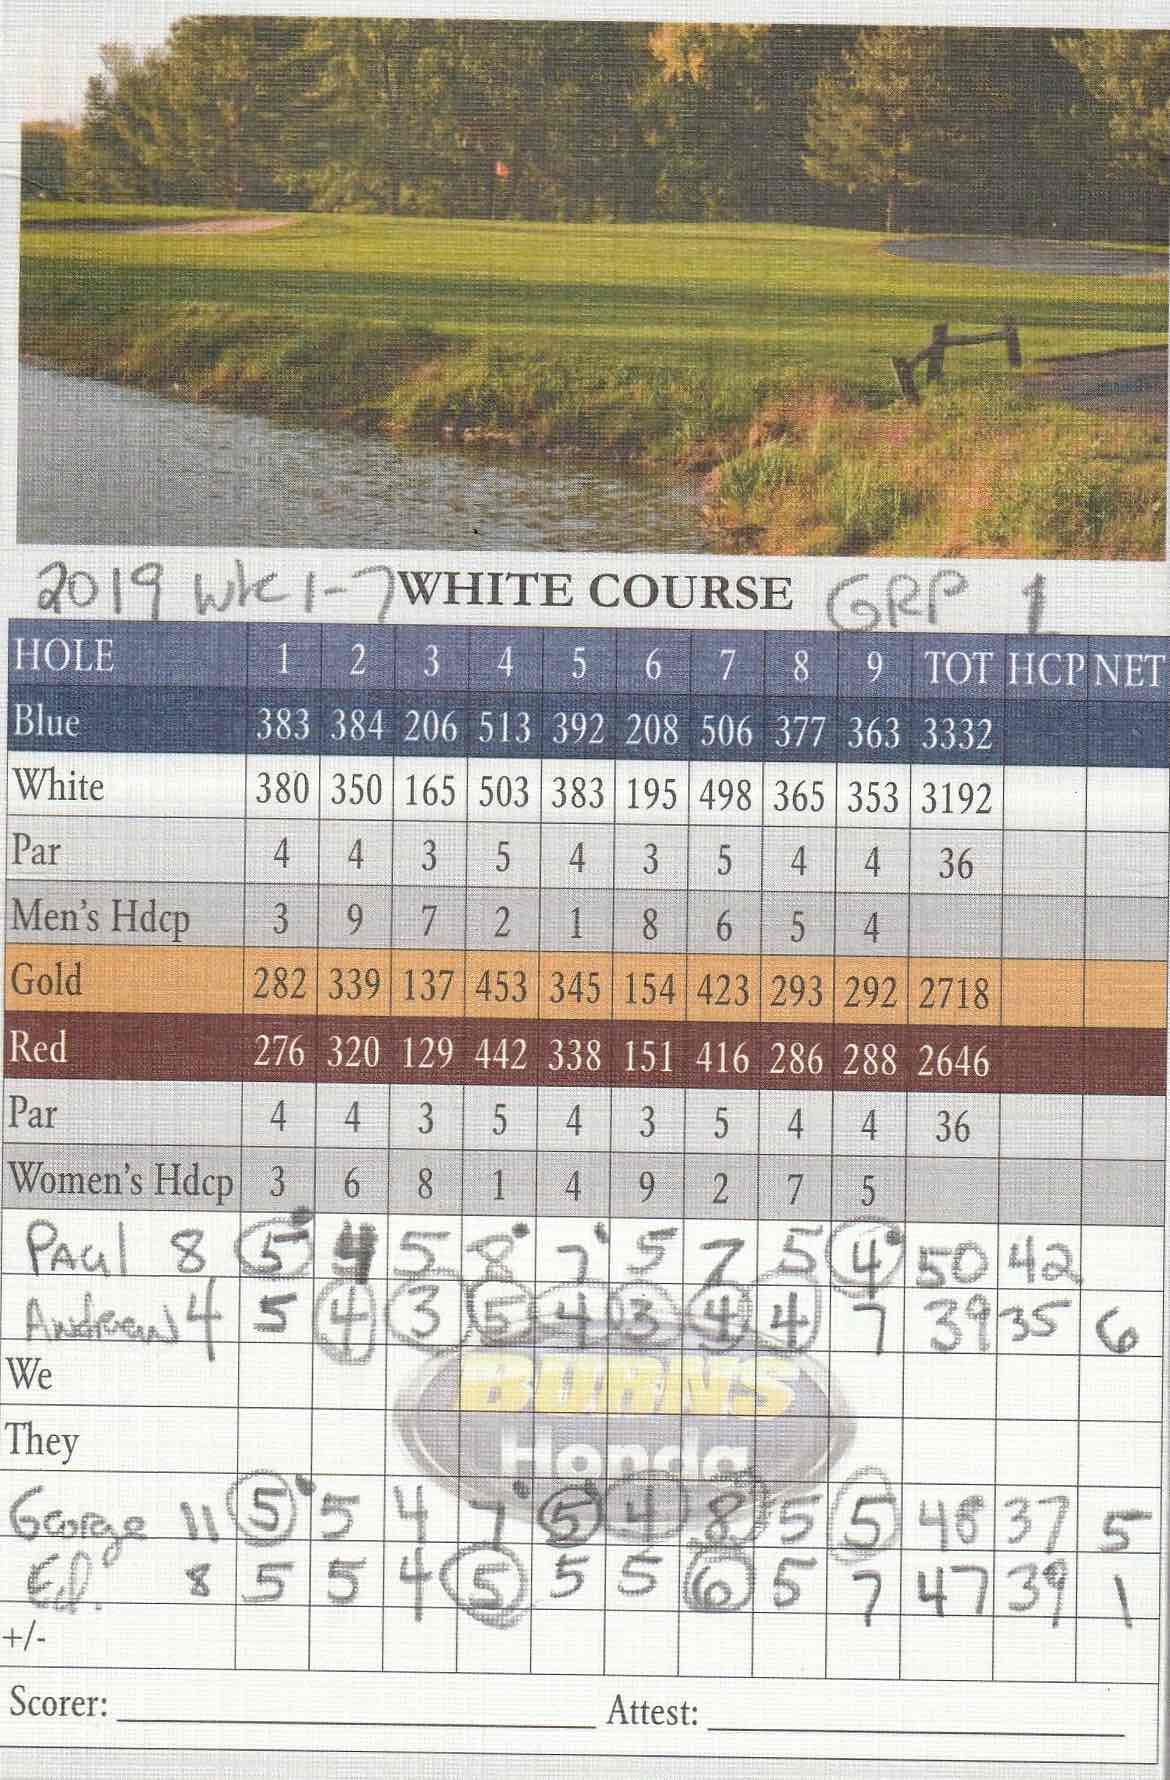 2019 WK 1-7 WHITE COURSE GRP 1
HOLE 1 2 3 4 5 6 7 8 9 TOT HCP NET
Blue 383 384 206 513 392 208 506 377 363 3332
White 380 350 165 503 383 195 498 365 353 3192
Par 4 4 3 5 4 3 5 4 4 36
Men's Hdcp 3 9 7 2 1 8 6 5 4
Gold 282 339 137 453 345 154 423 293 292 2718
Red 276 320 129 442 338 151 416 286 288 2646
Par 4 4 3 5 4 3 5 4 4 36
Women's Hdcp 3 6 8 1 4 9 2 7 5
PAUL 8 5 4 5 8 7 5 7 5 4 50 42
Andrew 4 5 4 3 5 4 3 4 4 7 39 35 6
We
BURNS
They
Honda
George 11 5 5 4 7 5 4 8 5 5 48 37 5
Ed. 8 5 5 4 5 5 5 6 5 7 47 39 1
+/-
Scorer: Attest: